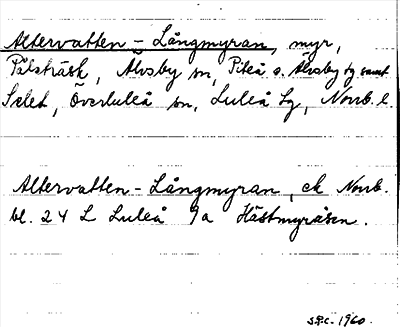 Altervatten - Långmyran, myr,
Pålsträsk, Älvsby sn, Piteå o. Älvsby tg samt
Selet, Överluleå sn, Luleå tg, Norrb. l.
Altervatten - Långmyran, ek Norrb.
bl. 24 L Luleå 9a Hästmyråsen.
S.P.C. 1960.